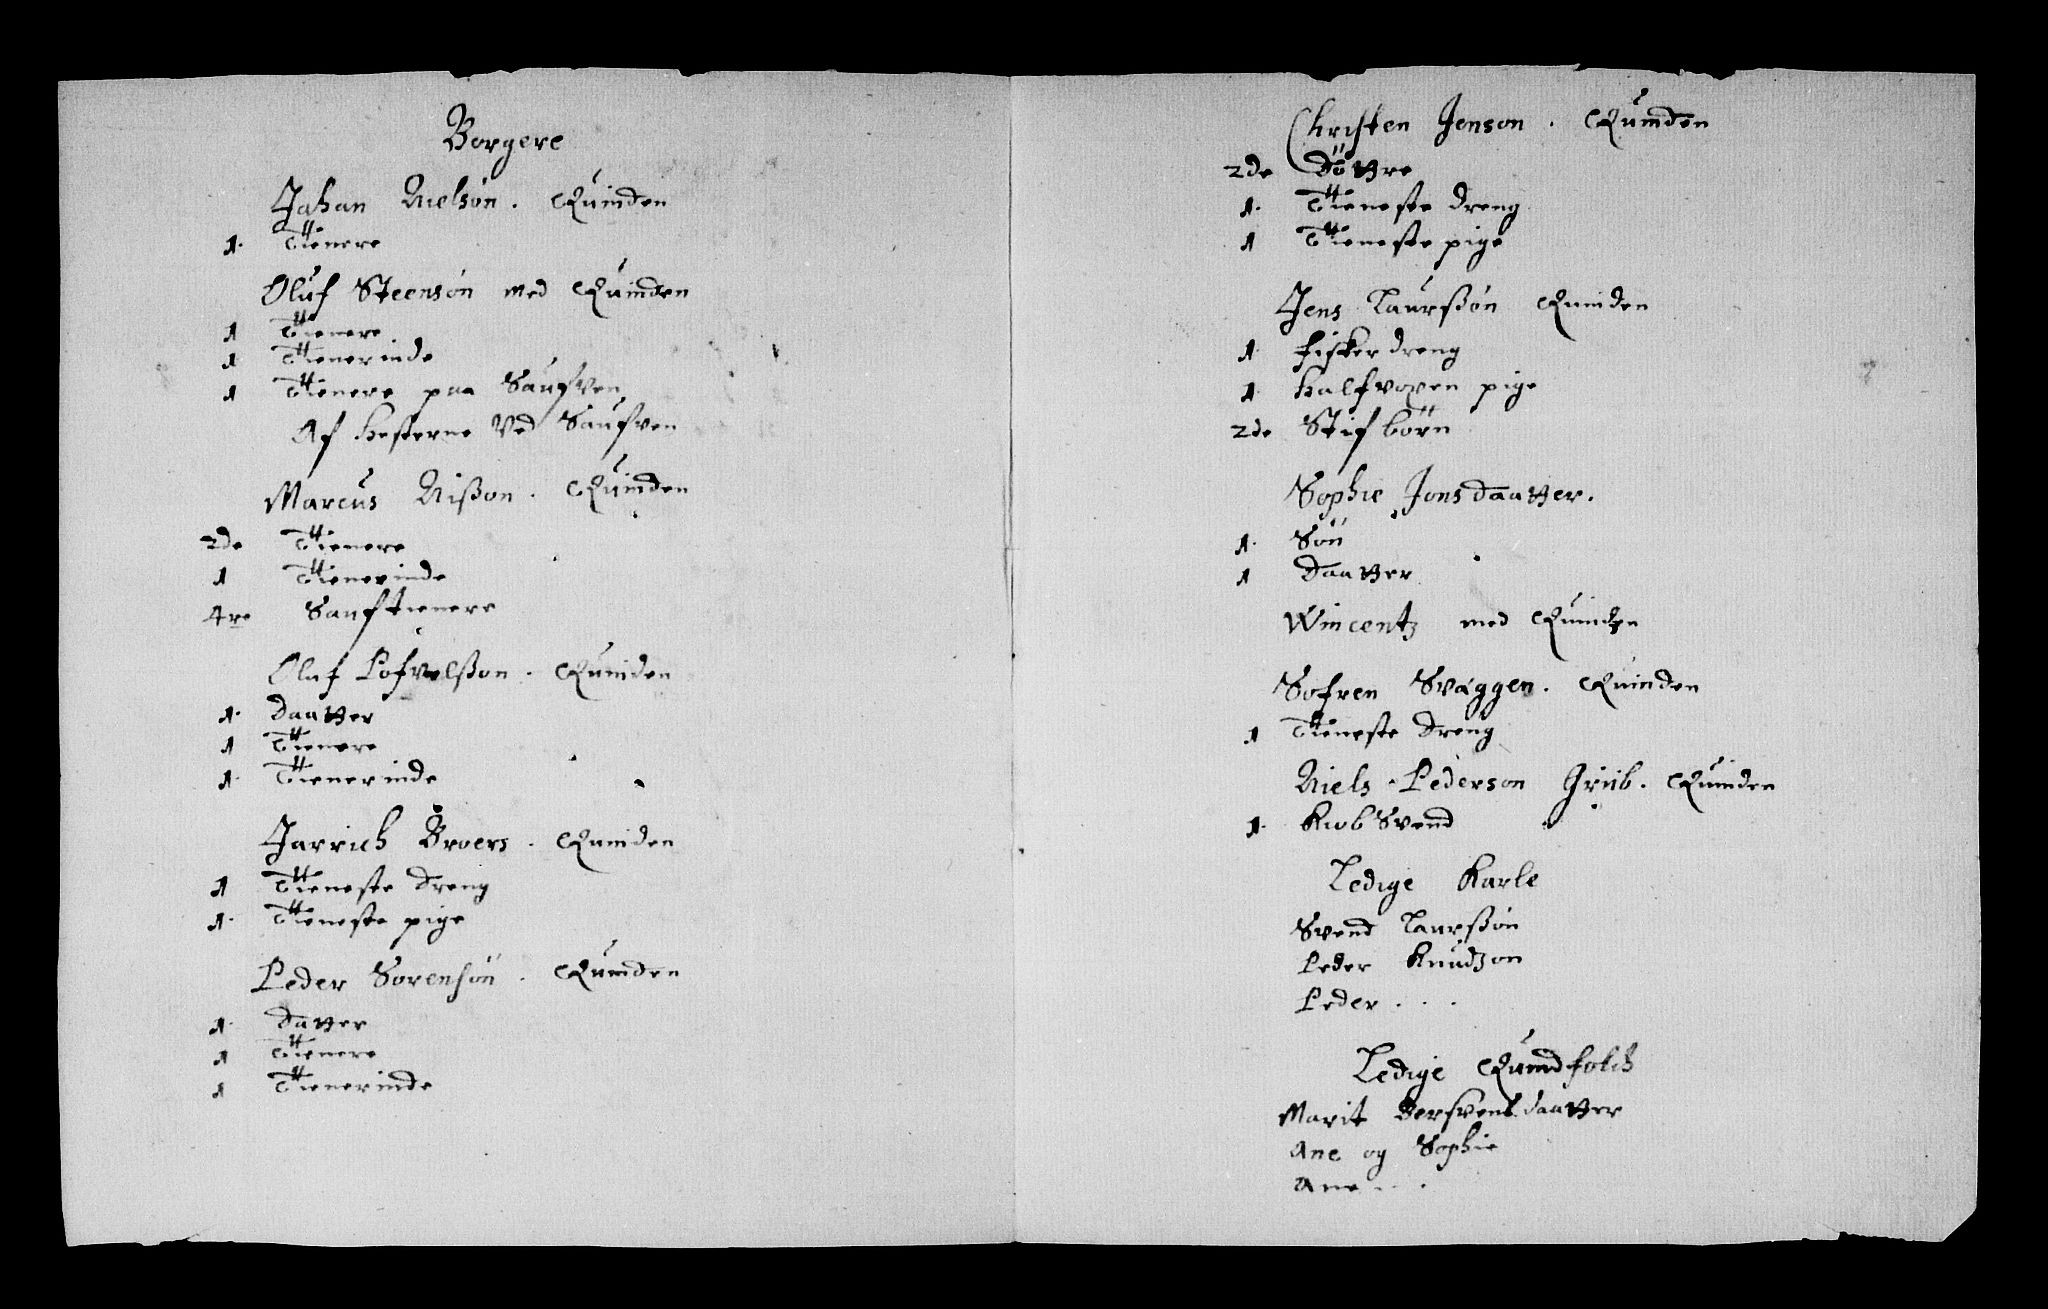 Borgere
Johan Nielsøn. Quinden
1. Tienere
Oluf Steensøn med Quinden
1 Tienere
1. Tienerinde
1 Tienere paa Saugven
Af hesterne Ved Saufven
Marcus Nißon. Quinden
2de Tienere
1 Tienerinde
4re Sauftienere
Oluf Pofvelßon. Quinden
1. Daatter
1 Tienere
1. Tienerinde
Jarrich Broers. Quinden
1 Tieneste Dreng
1. Tieneste pige
Peder Sørensøn. Quinden
1. Datter
1 Tienere
1 Tienerinde
Christen Jenson. Quinden
2de Døttre
1. Tieneste dreng
1 Tieneste pige
Jens Laurßøn Quinden
1. fisker dreng
1. halfvoxen pige
2de Stifbörn
Sophie Jonsdaatter.
1. Søn
1 Daatter
Wincentz med Quinden
Sofren Svaggen. Quinden
1 Tieneste Dreng
Niels Pederson Grüb. Quinden
1. KiobSvend
Ledige Karle
Svend Laurßøn
Peder Knudzon
Peder . . .
Ledige Quindfolch
Marit Bersvensdaatter
Ane og Sophie
Ane . . .